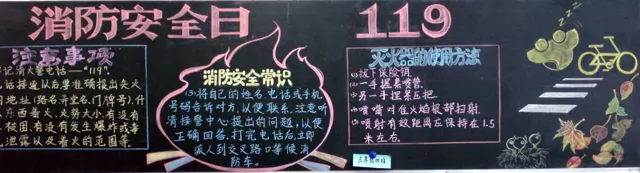 消防安全日 119
注意事项
记清火警电话——"119"。
电话接通以后要准确报出失火
的地址(路名弄堂名、门牌号)、什
么东西着火、火势大小、有没有
被困、有没有发生爆炸或毒
气泄露以及着火的范围等。
消防安全常识
(3)将自己的姓名、电话或手机
号码告诉对方,以便联系。注意听
清接警中心提出的问题,以便
正确回答。打完电话后,立即
派人到交叉路口等候消
防车。
灭火器的使用方法
(1)拔下保险销
(2)一手握紧喷管
(3)另一手捏紧压把
(4)喷嘴对准火焰根部扫射
(5)喷射有效距离应保持在1.5
米左右.